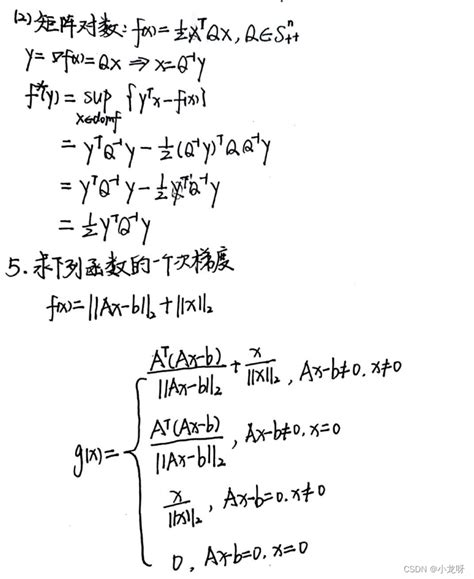 (2) 矩阵对数: f(x) = ½x^T Qx, Q∈S^n_{++}
y = ∇f(x) = Qx ⇒ x = Q^{-1}y
f*(y) = sup_{x∈domf} {y^T x - f(x)}
= y^T Q^{-1} y - ½(Q^{-1}y)^T Q Q^{-1} y
= y^T Q^{-1} y - ½ y^T Q^{-1} y
= ½ y^T Q^{-1} y
5. 求下列函数的一个次梯度
f(x) = ||Ax-b||₂ + ||x||₂
g(x) = {
A^T(Ax-b) / ||Ax-b||₂ + x / ||x||₂, Ax-b≠0, x≠0
A^T(Ax-b) / ||Ax-b||₂, Ax-b≠0, x=0
x / ||x||₂, Ax-b=0, x≠0
0, Ax-b=0, x=0
CSDN @小龙呀